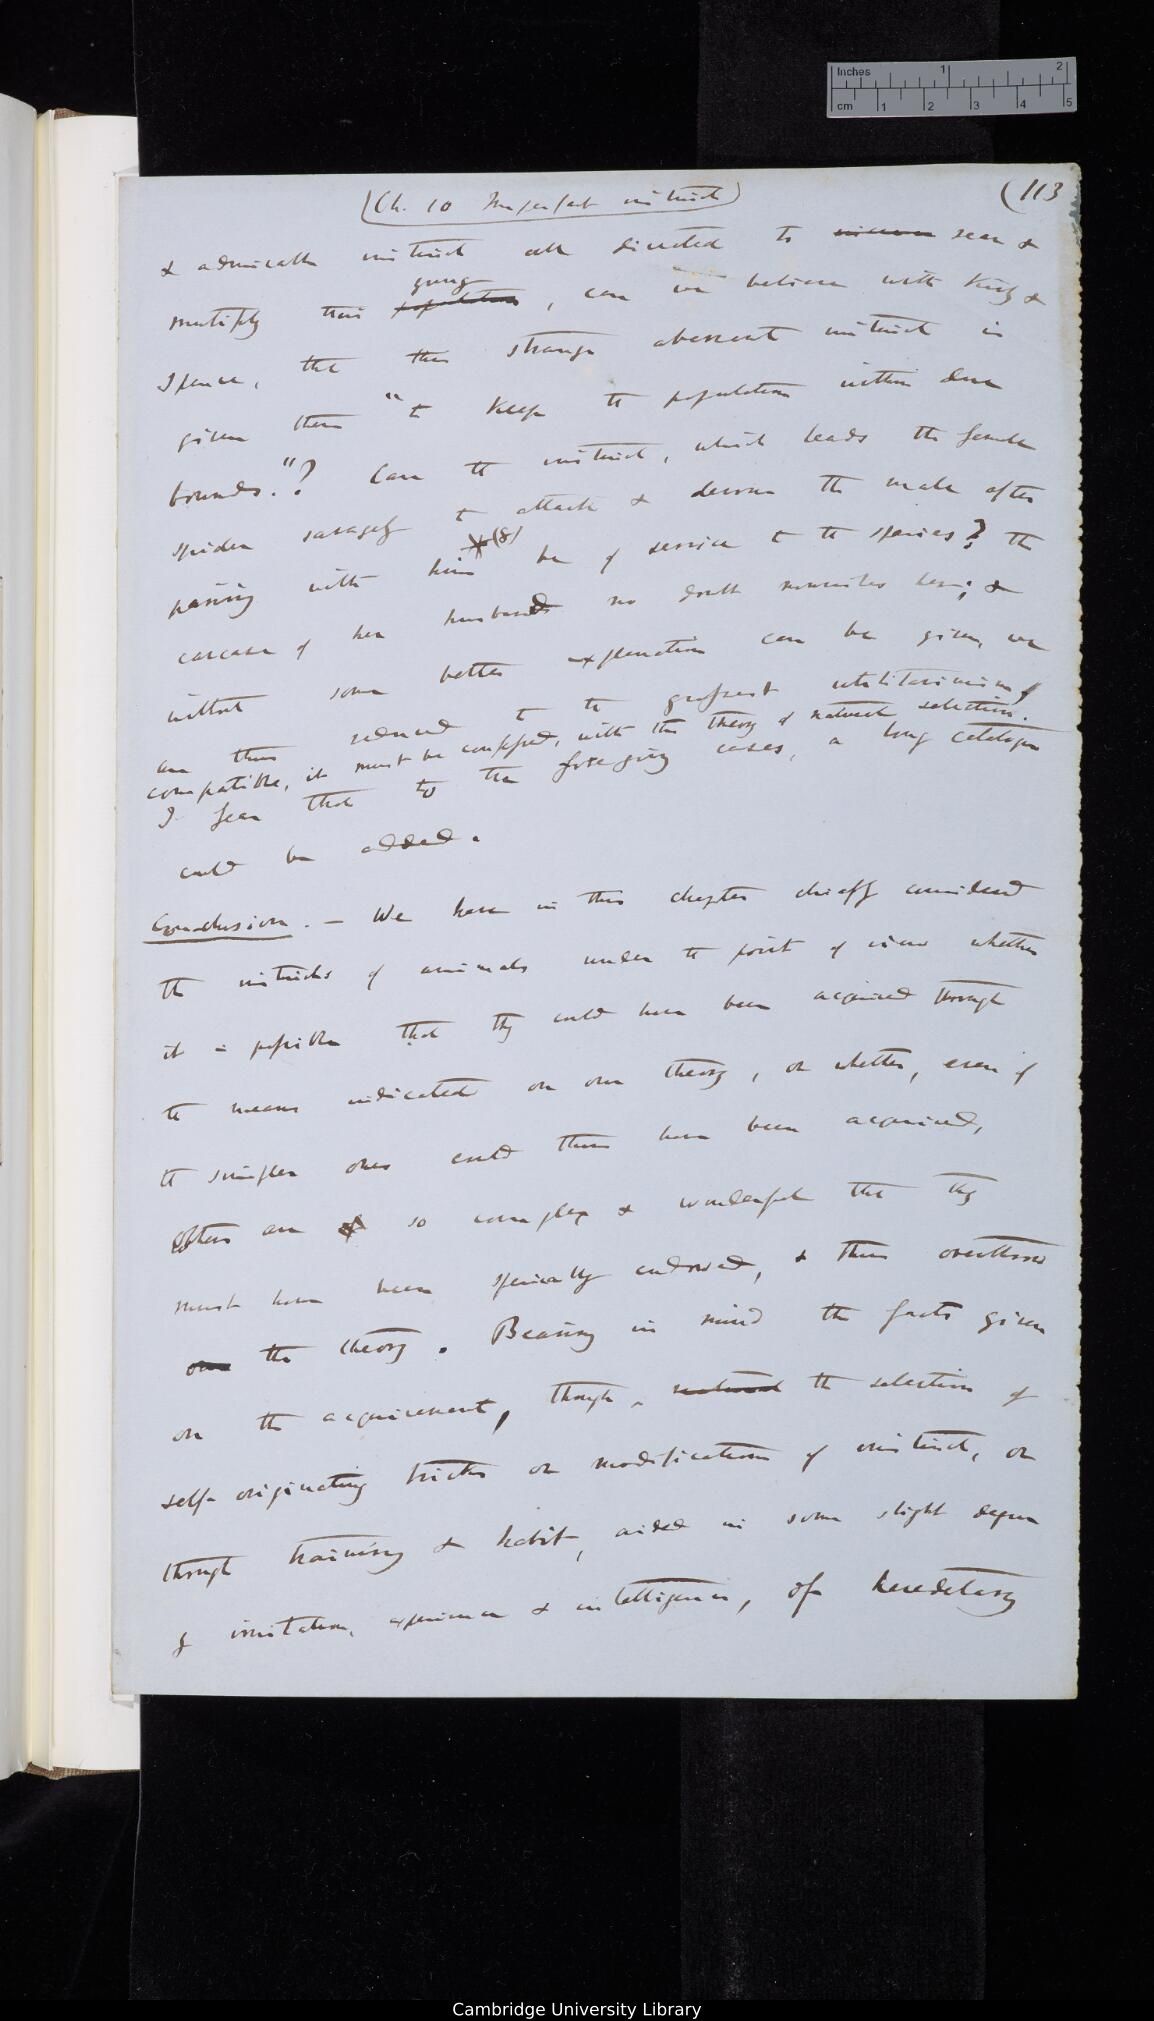 Inches 1 2
cm 1 2 3 4 5
(Ch. 10 Imperfect instinct)
(113
& admirable instinct all directed to rear &
young
multiply their population, can we believe with Kirby &
Spence, that this strange aberrant instinct is
given them "to keep the population within due
bounds."? Can the instinct, which leads the female
spider savagely to attack & devour the male after
*(8)
pairing with him be of service to the species? The
carcase of her husband no doubt nourishes her; &
without some better explanation can be given, we
are thus reduced to the grossest utilitarianism,
compatible, it must be confessed, with the theory of natural selection.
I fear that to the foregoing cases, a long catalogue
could be added.
Conclusion. — We have in this chapter chiefly considered
the instincts of animals under the point of view whether
it is possible that they could have been acquired through
the means indicated on our theory, or whether, even if
the simpler ones could thus have been acquired,
others are so complex & wonderful that they
must have been specially endowed, & thus overthrow
our the theory. Bearing in mind the facts given
on the acquirement, through natural the selection of
self-originating tricks or modifications of instinct, or
through training & habit, aided in some slight degree
by imitation, experience & intelligence, of hereditary
Cambridge University Library